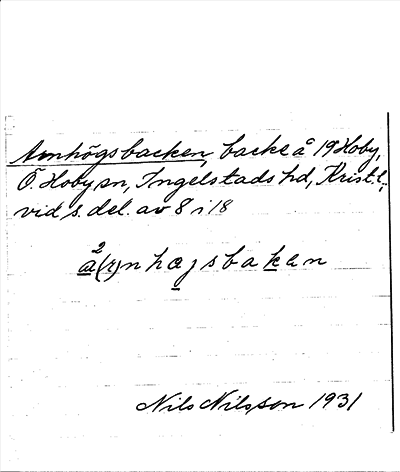 Arnhögsbacken, backe å 19 Hoby,
Ö. Hoby sn, Ingelstads hd, Krist. l.,
vid s. del. av 8 i 18
2
a(r)nhøgsbakan
Nils Nilsson 1931